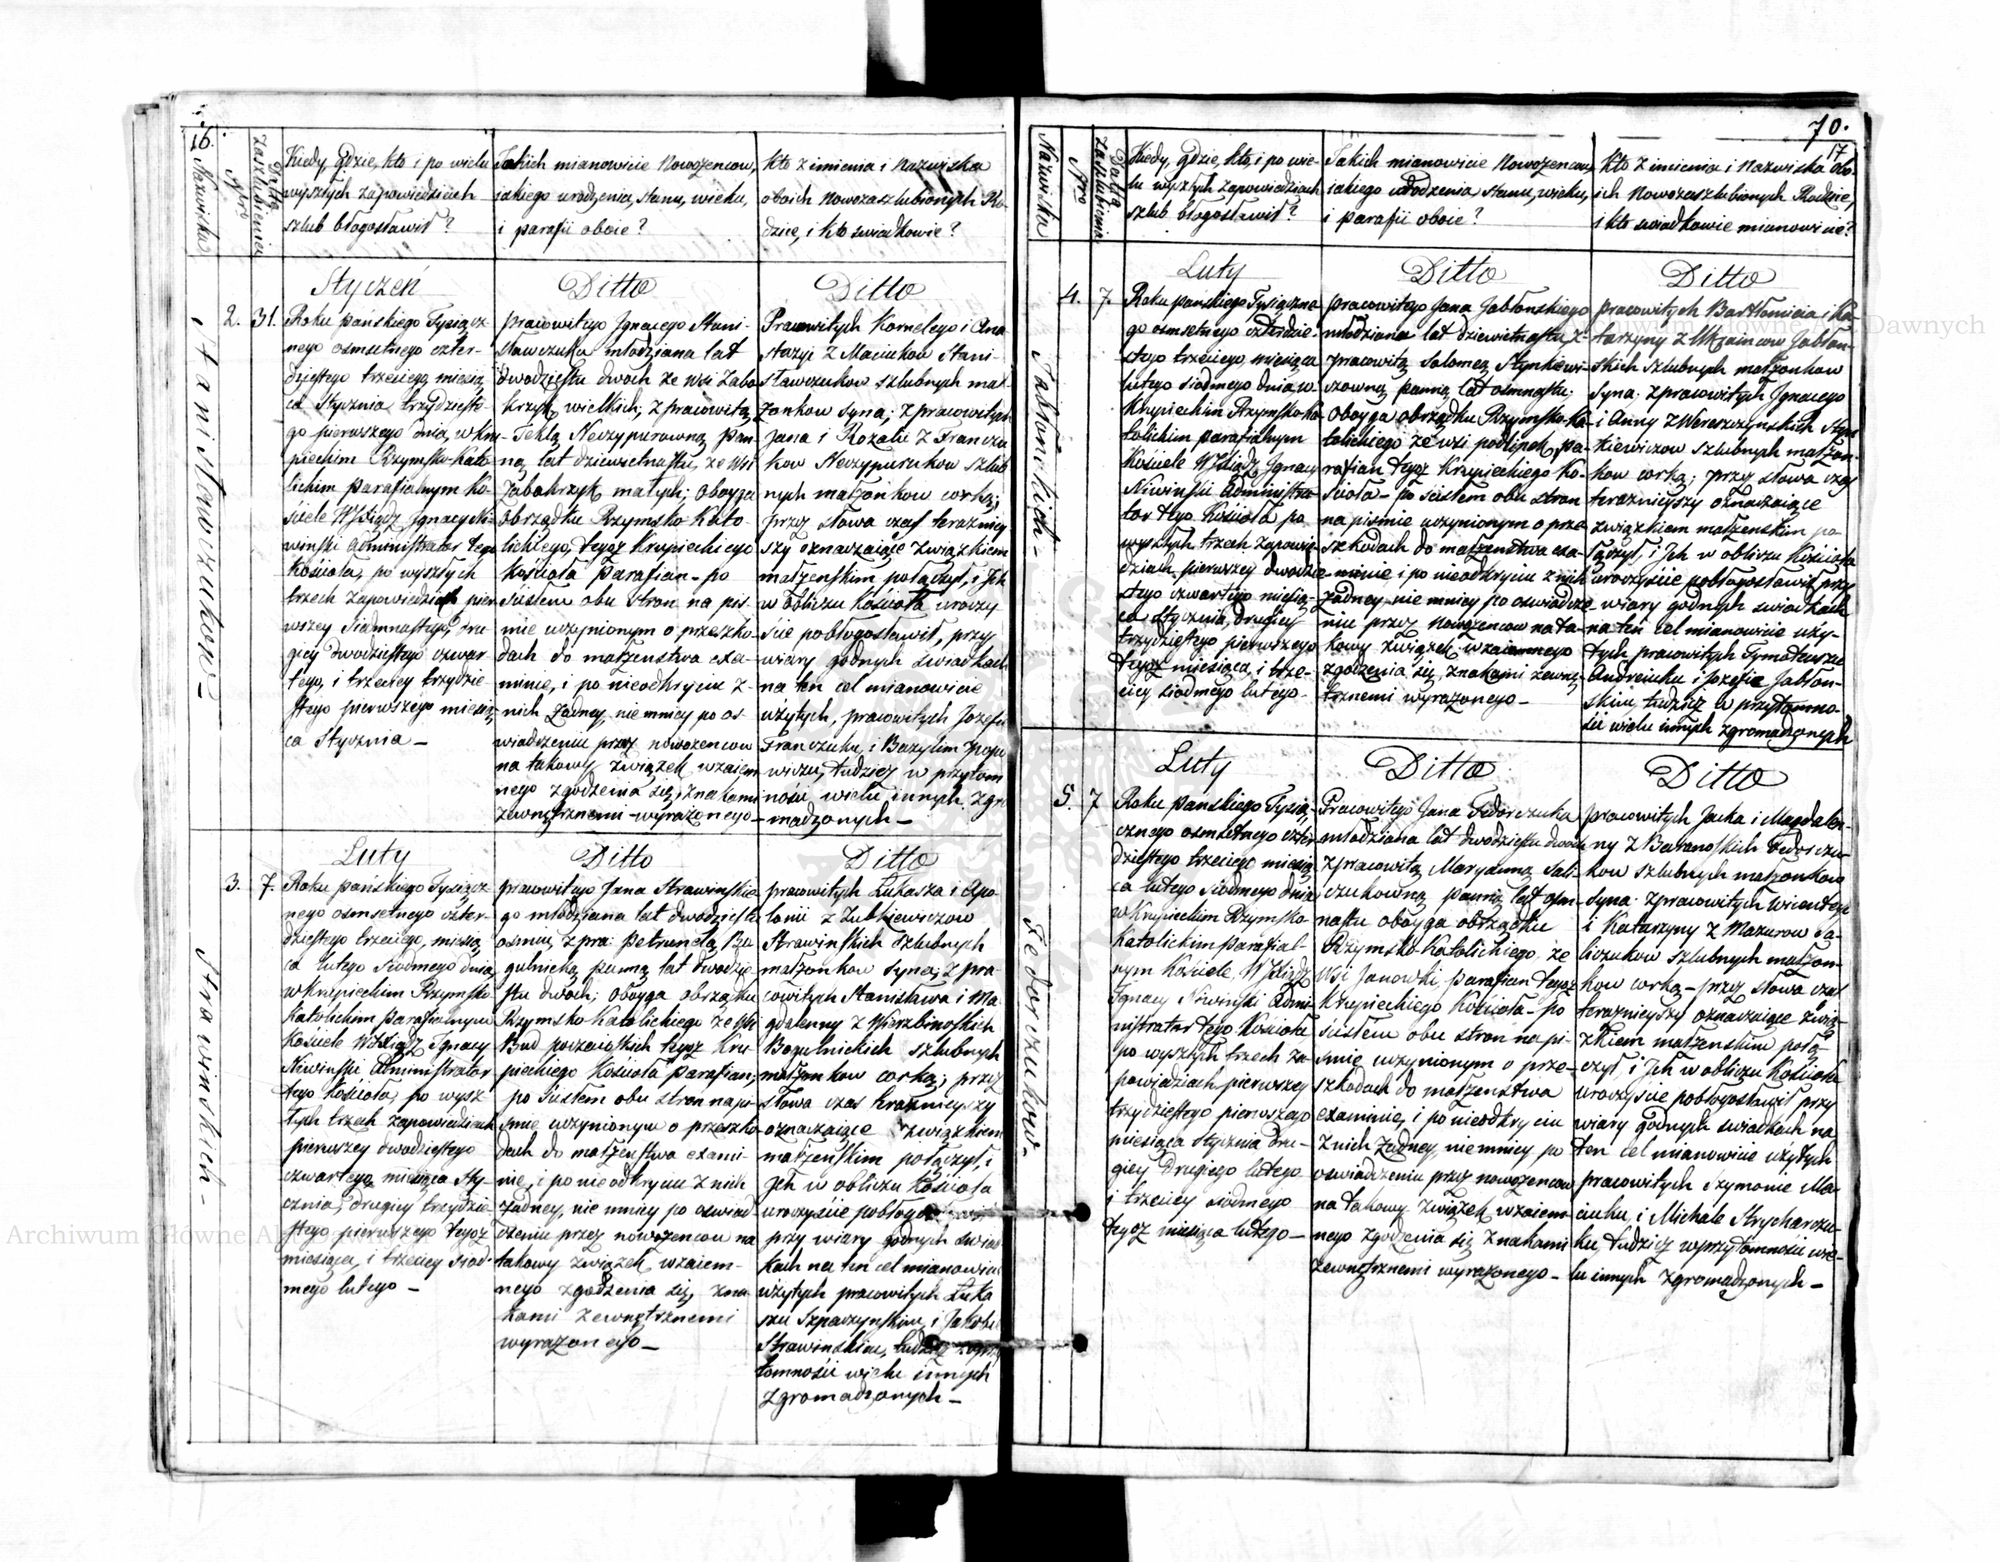 16.
Nazwiska
Nro
Data Zaszlubienia
Kiedy, gdzie, kto i po wielu
wyszłych zapowiedziach
szlub błogosławił?
Jakich mianowicie Nowożencow,
jakiego urodzenia, stanu, wieku,
i parafii oboie?
Kto z imienia i Nazwiska
oboich Nowozaszlubionych Ro-
dzice, i kto swiadkowie?
Stanisławczukow
2.
31.
Styczeń
Roku Pańskiego Tysiącz
nego osmsetnego czter-
dziestego trzeciego miesią
ca Stycznia trzydziesto
go pierwszego dnia, w Kru
pieckim Rzymsko-Kato
lickim parafialnym Ko-
sciele WJXiądz Jgnacy Ni-
winski Administrator tego
Kościoła, po wyszłych
trzech zapowiedziach pier
wszey siedmnastego, dru
giey dwodziestego czwar
tego, i trzeciey trzydzie
stego pierwszego miesią
ca Stycznia –
Ditto
Pracowitego Jgnacego Stani-
sławczuka młodziana lat
dwodziestu dwoch ze wsi Zabo
krzyk wielkich; z pracowitą
Teklą Neczypurowną pan-
ną lat dziewietnastu, ze wsi
Zabokrzyk małych; oboyga
obrządku Rzymsko Kato
lickiego, tegoż Krupieckiego
Kościoła Parafian – po
scisłem obu stron na pis-
mie uczynionym o przeszko-
dach do małzenstwa exa-
minie, i po nieodkryciu z-
nich żadney, nie mniey po os-
wiadczeniu przez nowożencow
na takowy związek wzaiem
nego zgodzenia się, znakami
zewnętrznemi wyrażonego –
Ditto
Pracowitych Kornelego i Ana
stazyi z Maciukow Stani-
sławczukow szlubnych mał-
żonkow syna; z pracowitych
Jana i Rozalii z Franczu
kow Neczypurukow szlub
nych małżonkow corką;
przez słowa czas terazniey
szy oznaczaiące związkiem
małzenskim połączył, i Jch
w obliczu Kościoła uroczy
scie pobłogosławił, przy
wiary godnych swiadkach
na ten cel mianowicie
użytych, pracowitych Jozefu
Franczuku, i Bazylim Popo
wiczu, tudzież w przytom
ności wielu innych zgro
madzonych –
Strawinskich –
3.
7.
Luty
Roku Pańskiego Tysiącz
nego osmsetnego czter-
dziestego trzeciego, miesią
ca lutego siodmego dnia
w Krupieckim Rzymsko
Katolickim parafialnym
Kościele WJXiądz Jgnacy
Niwinski Administrator
tego Kościoła, po wysz
łych trzech zapowiedziach
pierwszey dwodziestego
czwartego miesiąca Sty-
cznia, drugiey trzydzie
stego pierwszego tegoż
miesiąca, i trzeciey siod-
mego lutego –
Ditto
pracowitego Jana Strawinskie
go młodziana lat dwodziestu
osmiu, z pra: Petrunelą Bu
gulnicką panną lat dwodzie
stu dwoch; oboyga obrządku
Rzymsko Katolickiego ze wsi
Bud tegoż Kru-
pieckiego Kościoła parafian;
po scisłem obu stron na pi-
smie uczynionym o przeszko
dach do małzenstwa exami-
nie, i po nieodkryciu z nich
żadney, nie mniey po oswiad
czeniu przez nowożencow na
takowy związek wzaiem-
nego zgodzenia się, zna
kami zewnętrznemi
wyrażonego –
Ditto
pracowitych Łukasza i Apo
lonii z Lubkiewiczow
Strawinskich szlubnych
małżonkow syna; z pra-
cowitych Stanisława i Ma
gdalenny z Wierzbinskich
Bogulnickich szlubnych
małżonkow corką; przez
słowa czas teraznieyszy
oznaczaiące związkiem
małzenskim połączył, i
Jch w obliczu Kościoła
uroczyscie
przy wiary godnych swiad
kach na ten cel mianowicie
użytych pracowitych Łuka
szu Szpaczynskim, i Jakobu
Strawinskim, tudzież w przy
tomności wielu innych
zgromadzonych –
70.
17
Nazwiska
Nro
Data Zaszlubienia
Kiedy, gdzie, kto i po wie-
lu wyszłych zapowiedziach
szlub błogosławił?
Jakich mianowicie Nowożencow,
iakiego urodzenia stanu, wieku,
i parafii oboie?
Kto z imienia i Nazwiska obo-
ich Nowozaszlubionych Rodzice,
i kto swiadkowie mianowicie?
Jabłonskich –
4.
7.
Luty
Roku pańskiego Tysiączne
go osmsetnego czterdzie-
stego trzeciego, miesiąca
lutego siodmego dnia w
Krupieckim Rzymsko Ka
tolickim parafialnym
Kościele WJXiądz Jgnacy
Niwinski Administra
tor tego Kościoła po
wyszłych trzech zapowie
dziach, pierwszey dwodzie
stego czwartego miesią-
ca stycznia, drugiey
trzydziestego pierwszego
tegoż miesiąca, i trze-
ciey siodmego lutego –
Ditto
pracowitego Jana Jabłonskiego
młodziana lat dziewietnastu z-
pracowitą Salomeą Stynkiewi-
czowną panną lat osmnastu;
oboyga obrządku Rzymsko-Ka
tolickiego ze wsi podlipek, pa-
rafian tegoż Krupieckiego Ko-
ścioła – po scisłem obu stron
na pismie uczynionym o prze
szkodach do małżenstwa exa-
minie i po nieodkryciu z nich
żadney, nie mniey po oswiadcze
niu przez Nowożencow na ta-
kowy związek wzaiemnego
zgodzenia się, znakami zewnę-
trznemi wyrażonego –
Ditto
pracowitych Bartłomieia i Ka
tarzyny z Jabłon-
skich szlubnych małżonkow
syna: z pracowitych Jgnacego
i Anny z Wereszczynskich Styn
kiewiczow szlubnych małżon-
kow corką; przez słowa czas
teraznieyszy oznaczaiące
związkiem małzenskim po-
łączył, i Jch w obliczu Kościoła
uroczyscie pobłogosławił przy
wiary godnych swiadkach
na ten cel mianowicie uży-
tych pracowitych Tymoteuszu
Andreiuku i Jozefie Jabłon-
skim, tudzież w przytomno-
ści wielu innych zgromadzonych
Fedorczukow –
5.
7
Luty
Roku Pańskiego Tysią-
cznego osmsetnego czter
dziestego trzeciego miesią
ca lutego siodmego dnia
w Krupieckim Rzymsko
Katolickim parafial-
nym Kościele, WJXiądz
Jgnacy Niwinski Admi-
nistrator tego Kościoła
po wyszłych trzech za-
powiedziach pierwszey
trzydziestego pierwszego
miesiąca stycznia dru-
giey drugiego lutego
i trzeciey siodmego
tegoż miesiąca lutego –
Ditto
Pracowitego Jana Fedorczuka
młodziana lat dwodziestu dwoch
z pracowitą Maryanną Sali-
czukowną panną lat osm-
nastu oboyga obrządku
Rzymsko-Katolickiego ze
wsi Janowki, parafian tegoż
Krupieckiego Kościoła – po
scisłem obu stron na pi-
smie uczynionym o prze-
szkodach do małżenstwa
examinie, i po nieodkryciu
z nich żadney, nie mniey po
oswiadczeniu przez nowożencow
na takowy związek wzaiem-
nego zgodzenia się znakami
zewnętrznemi wyrażonego –
Ditto
pracowitych Jacka i Magdalen-
ny z Baranoskich Fedorczu-
kow szlubnych małżonkow
syna: z pracowitych Wicentego
i Katarzyny z Mazurow Sa-
liczukow szlubnych małżon-
kow corką – przez słowa czas
teraznieyszy oznaczaiące zwią-
zkiem małzenskim połą-
czył, i Jch w obliczu Kościoła
uroczyscie pobłogosławił przy
wiary godnych swiadkach na
ten cel mianowicie użytych
pracowitych Szymonie Ma-
ciuku, i Michale Strycharczu-
ku, tudzież w przytomności wie-
lu innych zgromadzonych –
Archiwum Główne Akt Dawnych